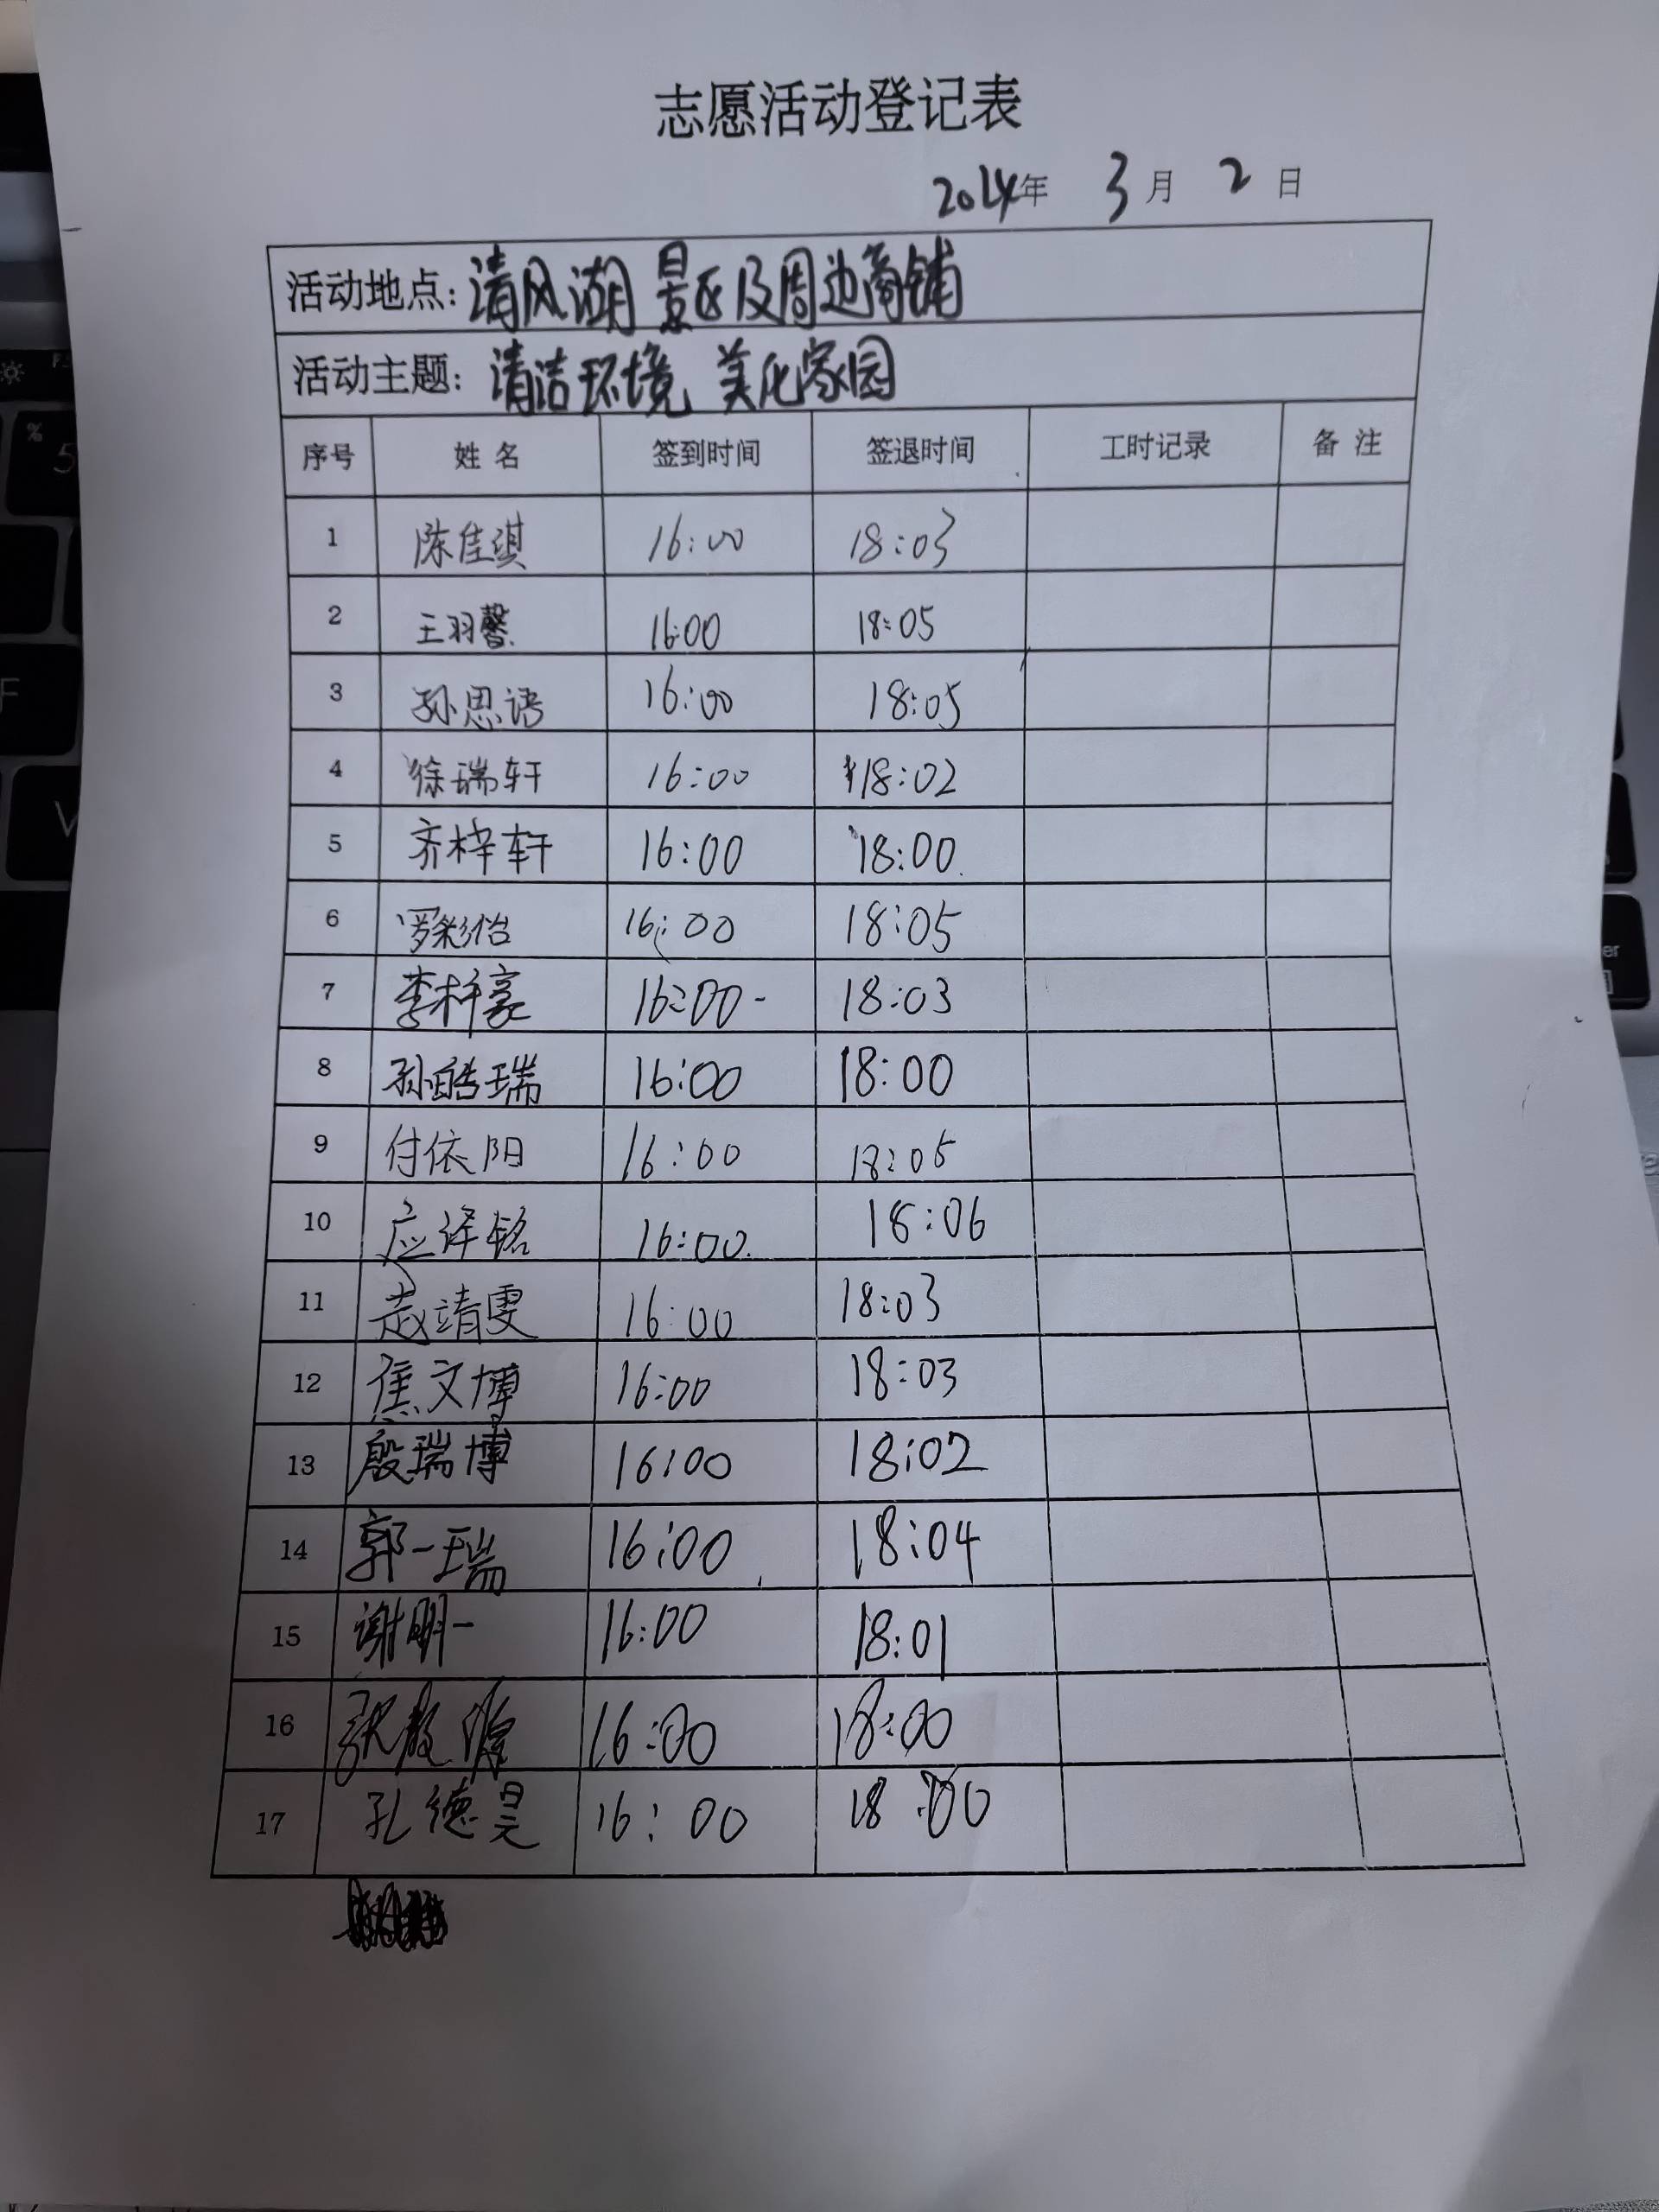 志愿活动登记表
2024年 3月 2日
活动地点:清风湖景区及周边商铺
活动主题:清洁环境 美化家园
序号 姓名 签到时间 签退时间 工时记录 备注
1 陈佳淇 16:00 18:03
2 王羽馨 16:00 18:05
3 孙思语 16:00 18:05
4 徐瑞轩 16:00 18:02
5 齐梓轩 16:00 18:00
6 罗彩怡 16:00 18:05
7 李梓豪 16:00 18:03
8 孙皓瑞 16:00 18:00
9 付依阳 16:00 18:05
10 应译铭 16:00 18:06
11 赵靖雯 16:00 18:03
12 焦文博 16:00 18:03
13 殷瑞博 16:00 18:02
14 郭一瑞 16:00 18:04
15 谢明一 16:00 18:01
16 16:00 18:00
17 孔德昊 16:00 18:00